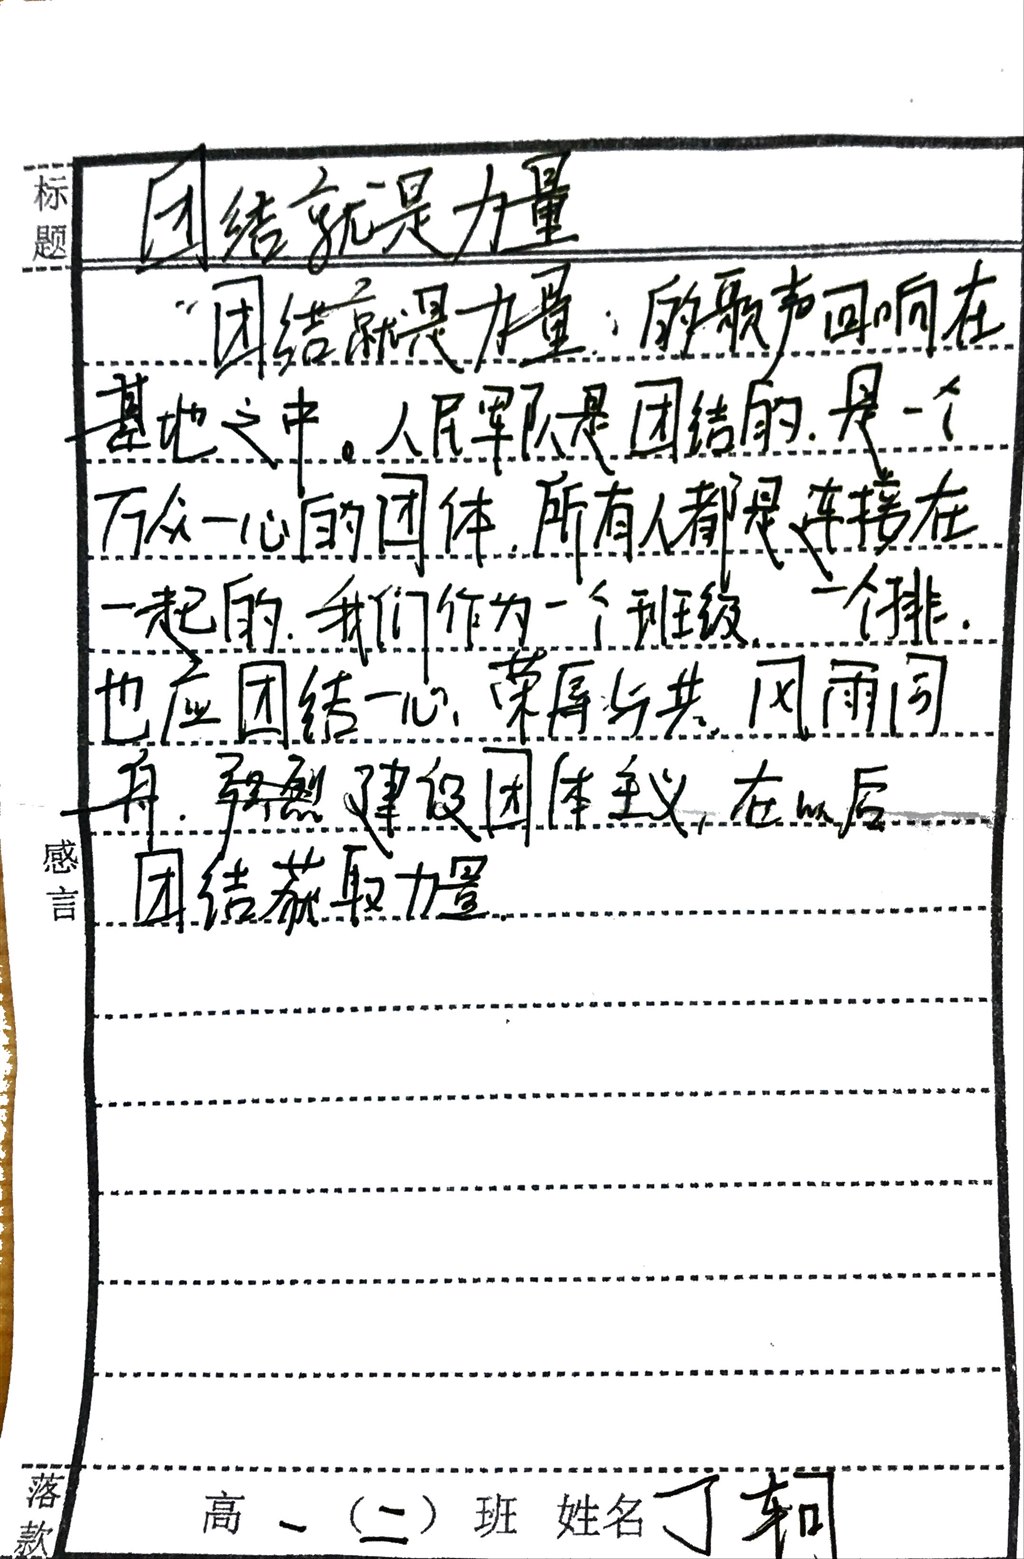 标题
团结就是力量
“团结就是力量”的歌声回响在
基地之中。人民军队是团结的,是一个
万众一心的团体,所有人都是连接在
一起的,我们作为一个班级,一个排,
也应团结一心,荣辱与共,风雨同
舟, 建设团体主义,在以后
感言
团结获取力量,
落款
高一(二)班 姓名丁轲